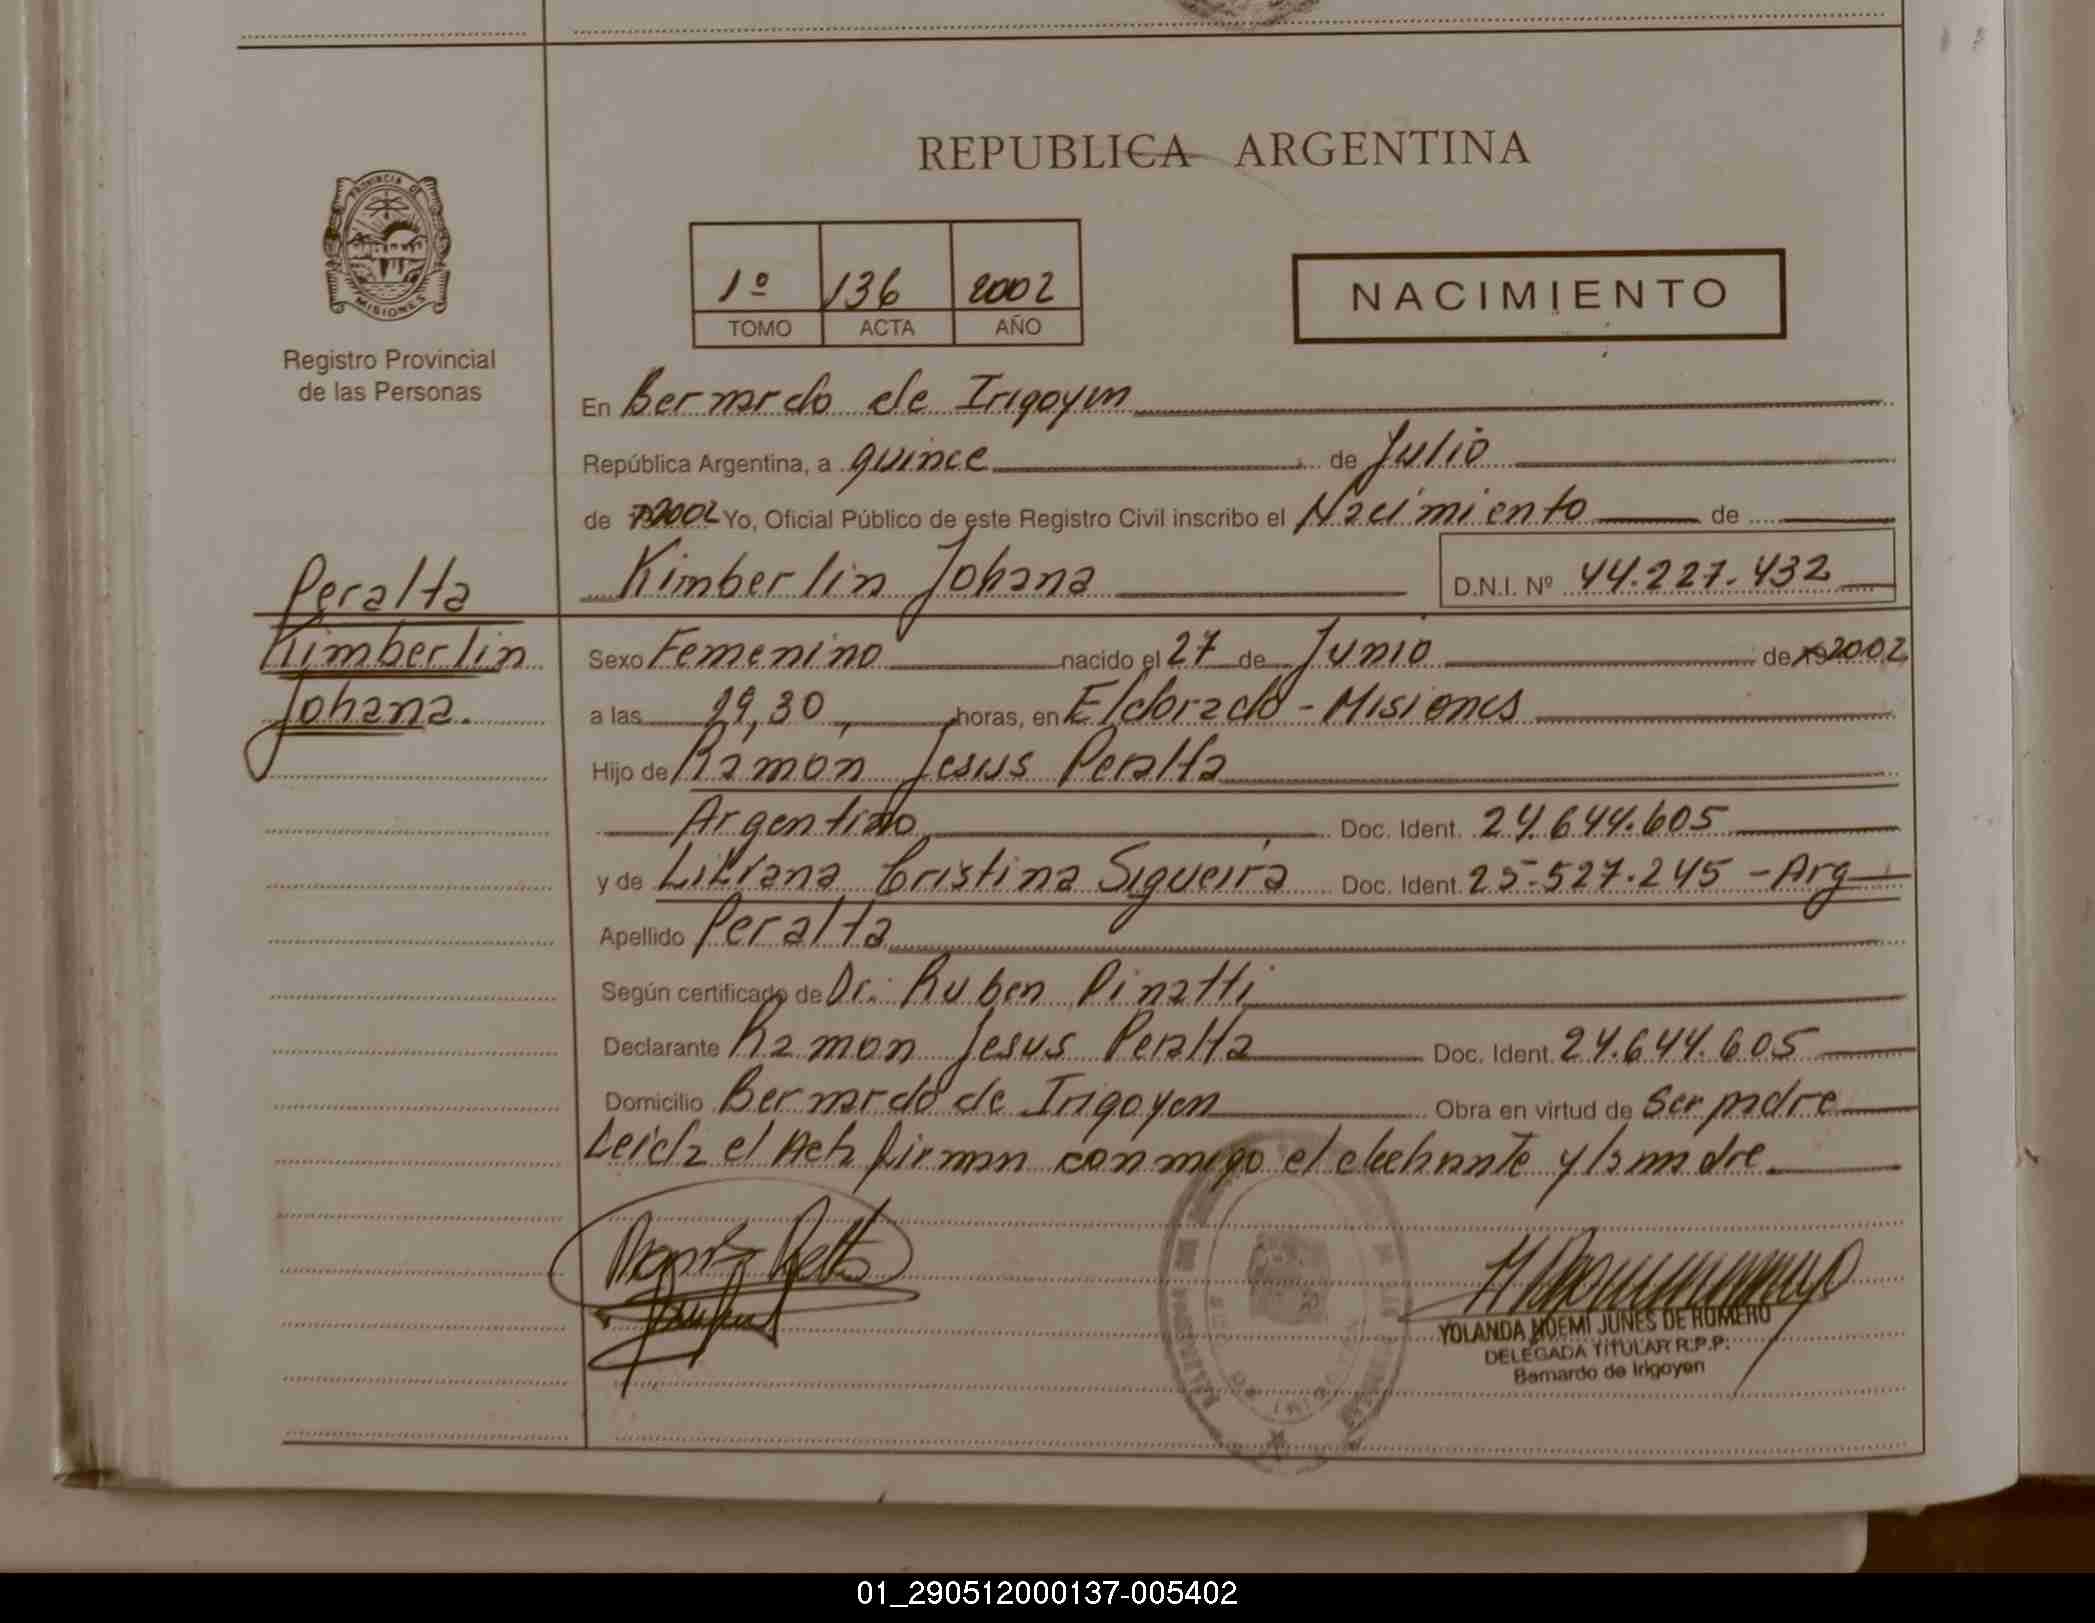 REPUBLICA ARGENTINA
PROVINCIA DE
MISIONES
Registro Provincial
de las Personas
1º 136 2002
TOMO ACTA AÑO
NACIMIENTO
En Bernardo de Irigoyen
República Argentina, a quince de Julio
de 2002 Yo, Oficial Público de este Registro Civil inscribo el Nacimiento de
Kimberlin Johana D.N.I. Nº 44.227.432
Peralta
Kimberlin
Johana.
Sexo Femenino nacido el 27 de Junio de 2002
a las ,30 horas, en Eldorado - Misiones
Hijo de Ramón Jesus Peralta
Argentino Doc. Ident. 24.644.605
y de Liliana Cristina Sigueira Doc. Ident. 25.527.245 - Arg
Apellido Peralta
Según certificado de Dr. Ruben Pinatti
Declarante Ramon Jesus Peralta Doc. Ident. 24.644.605
Domicilio Bernardo de Irigoyen Obra en virtud de ser padre
Leida el Acta firman conmigo el declarante y la madre
YOLANDA NOEMI JUNES DE ROMERO
DELEGADA TITULAR R.P.P.
Bernardo de Irigoyen
01_290512000137-005402